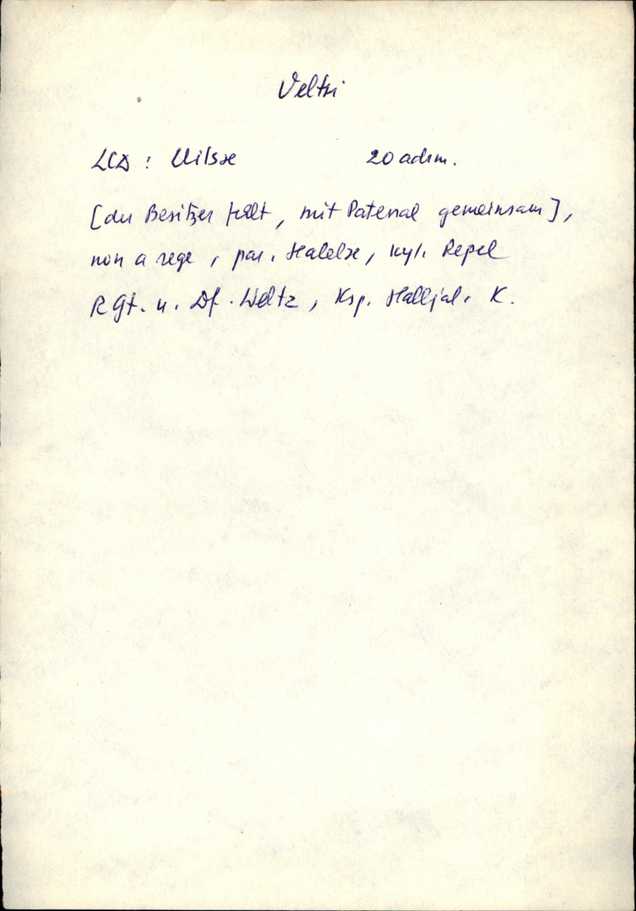 Veltsi
LCD: Uilsæ 20 adsm.
[der Besitzer felt, mit Patenal gemeinsam],
non a rege, par. Halelæ, kyl. Repel
RGt. u. Df. Weltz, Ksp. Halljal. K.